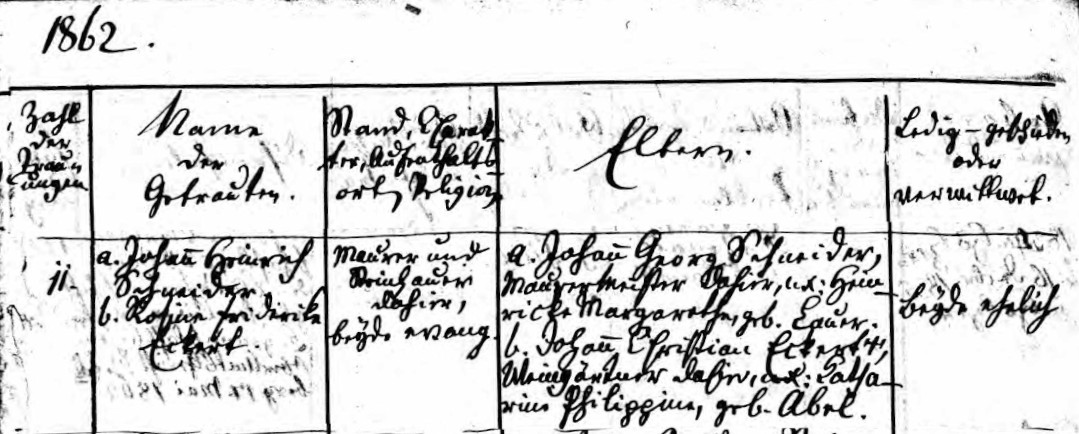 1862.
Zahl
der
Trau-
ungen
Name
der
Getrauten.
Stand, Charak-
ter, Aufenthalts-
ort, Religion
Eltern.
Ledig - geschieden
oder
verwittwet.
11.
a. Johañ Heinrich
Schneider
b. Rosine Friderike
Eckert.
Maurer und
Steinhauer
dahier,
beyde evang.
a. Johañ Georg Schneider,
Maurermeister dahier, ux: Hein-
ricke Margarethe, geb. Lauer.
b. Johañ Christian Eckert †,
Weingärtner dahier, ux: Catha-
rine Philippine, geb. Abel.
beyde ehelich